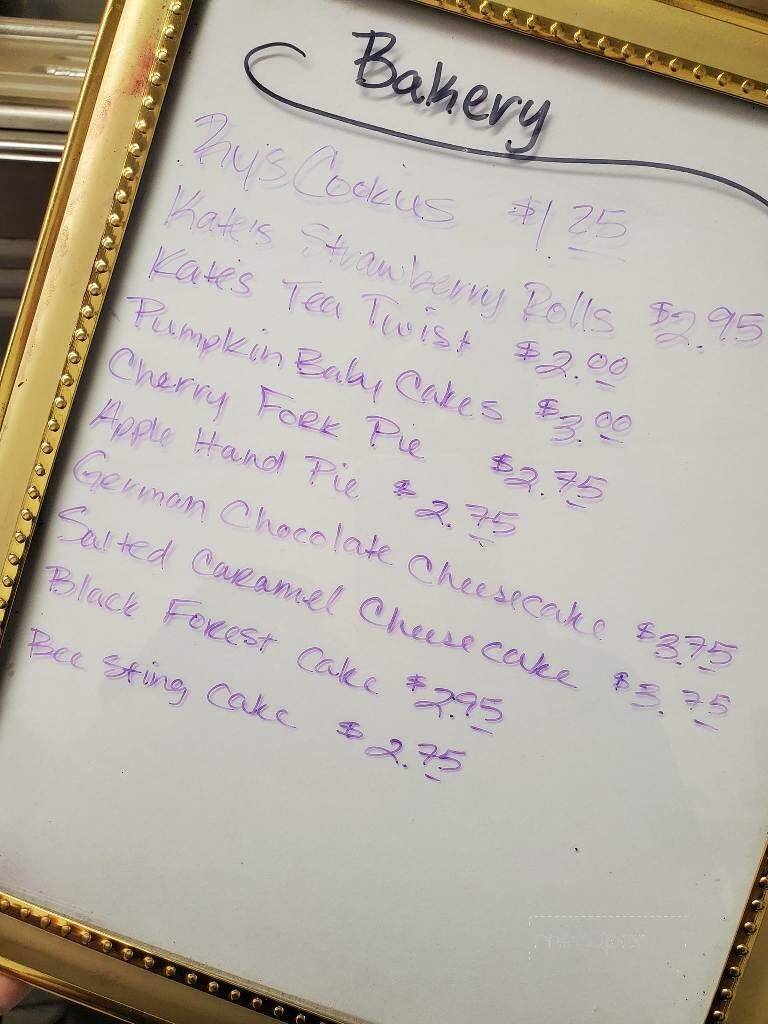 Bakery
Cookies $1.25
Kate's Strawberry Rolls $2.95
Kate's Tea Twist $2.00
Pumpkin Baby Cakes $3.00
Cherry Fork Pie $2.75
Apple Hand Pie $2.75
German Chocolate Cheesecake $3.75
Salted Caramel Cheesecake $3.75
Black Forest Cake $2.95
Bee Sting Cake $2.75